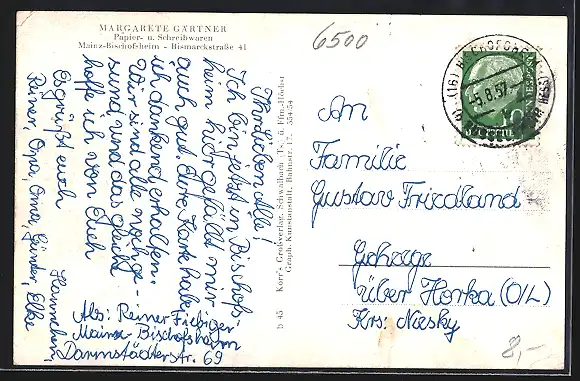 MARGARETE GÄRTNER
Papier- u. Schreibwaren
Mainz-Bischofsheim - Bismarckstraße 41
6500
Ihr lieben Alle!
Ich bin jetzt in Bischofs
heim hier gefällt mir
auch gut. Eure Karte habe
ich dankend erhalten.
Wir sind alle noch ge-
sund, und das gleiche
hoffe ich von Euch
Es grüßt euch
Reiner, Opa, Oma, Günter, Elke
Hannchen
Abs: Reiner Fiebiger
Mainz-Bischofsheim
Darmstädterstr. 69
b 45 Korr's Großverlag, Schwalbach Ts. ü. Ffm.-Höchst
Graph. Kunstanstalt, Bahnstr. 17
-5.8.57-
An
Familie
Gustav Friedland
Gehege
über Horka (O/L)
Krs: Niesky
8,-